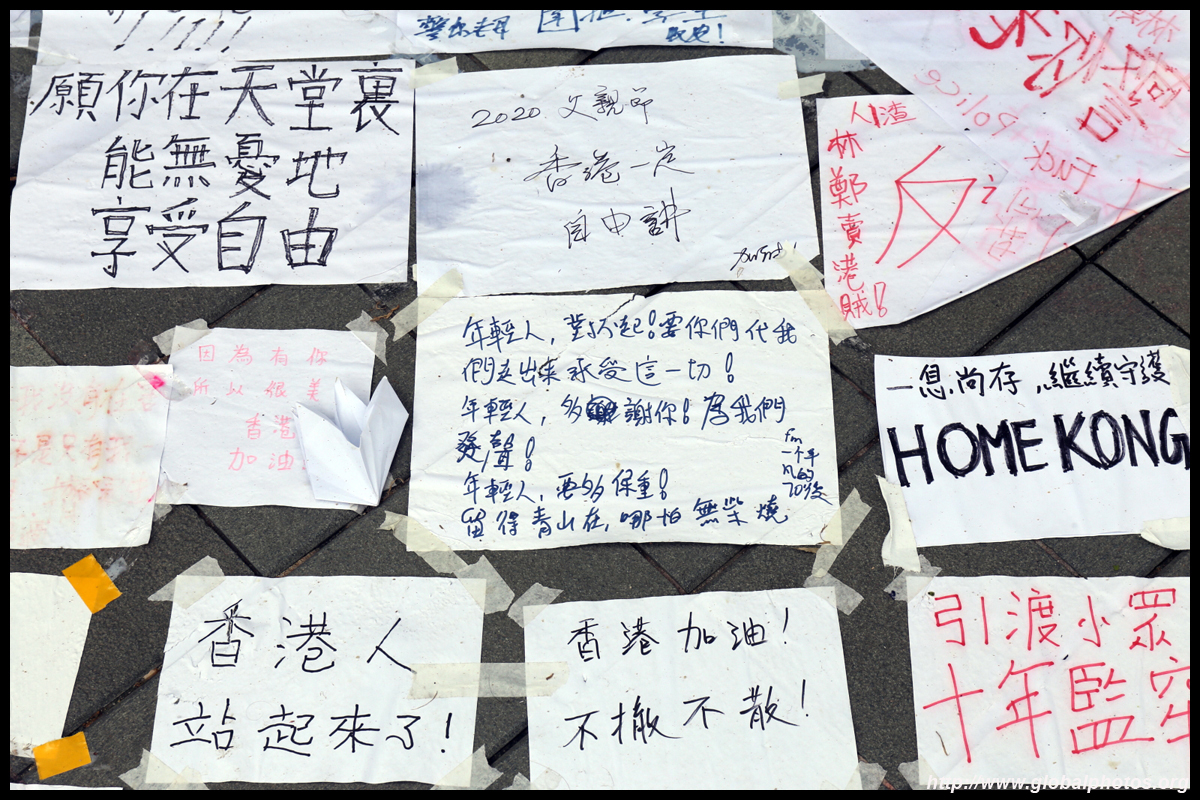 願你在天堂裏
能無憂地
享受自由
2020 父親節
香港一定
自由講
人渣
林鄭賣港賊!
反
因為有你
所以很美
香港
加油
年輕人，對不起!要你們代我
們走出來承受這一切!
年輕人，多謝你!為我們
發聲!
年輕人，要多保重!
留得青山在，哪怕無柴燒
fm
一个年
70後
一息尚存，繼續守護
HOME KONG
香港人
站起來了!
香港加油!
不撤不散!
引渡小眾
十年監
http://www.globalphotos.org